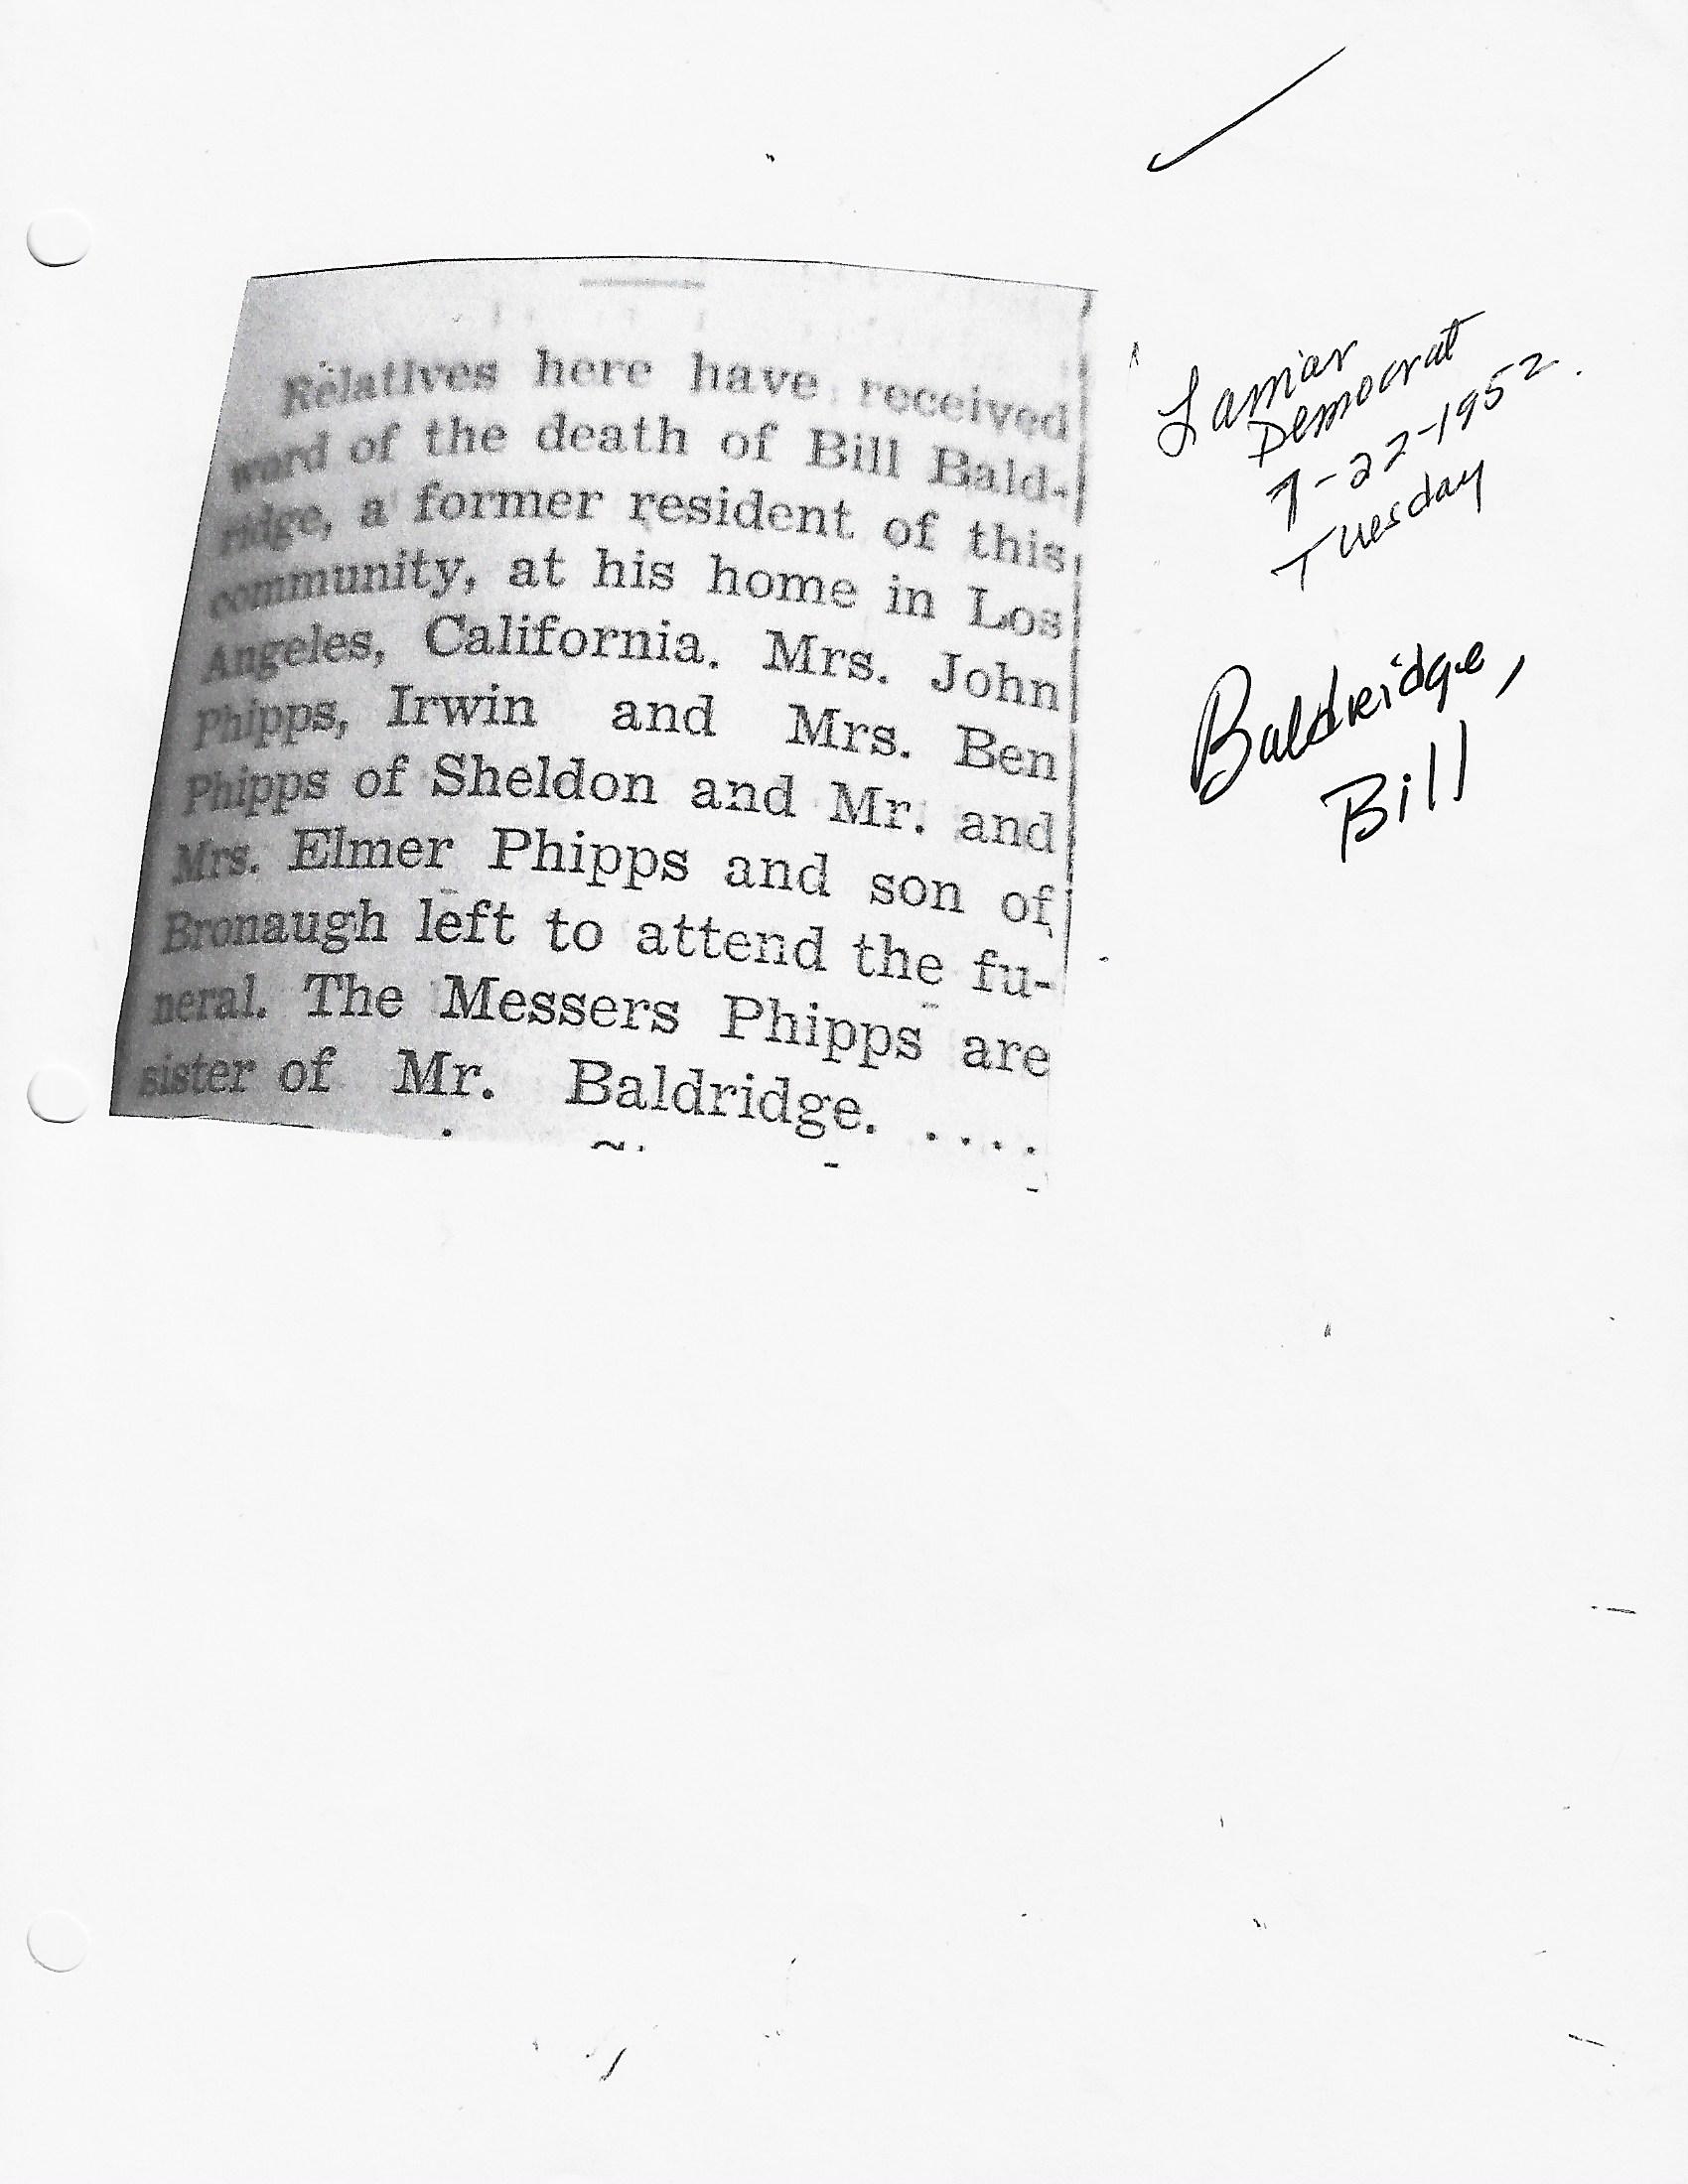 Relatives here have received
word of the death of Bill Bald-
ridge, a former resident of this
community, at his home in Los
Angeles, California. Mrs. John
Phipps, Irwin and Mrs. Ben
Phipps of Sheldon and Mr. and
Mrs. Elmer Phipps and son of
Bronaugh left to attend the fu-
neral. The Messers Phipps are
sister of Mr. Baldridge. ....
Lamar
Democrat
7-22-1952.
Tuesday
Baldridge,
Bill